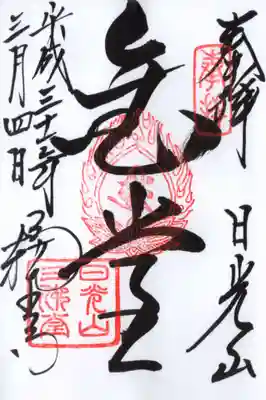 奉拝
奉拝
日光山
金堂
平成三十一年
三月四日
輪王寺
日光山
三佛堂